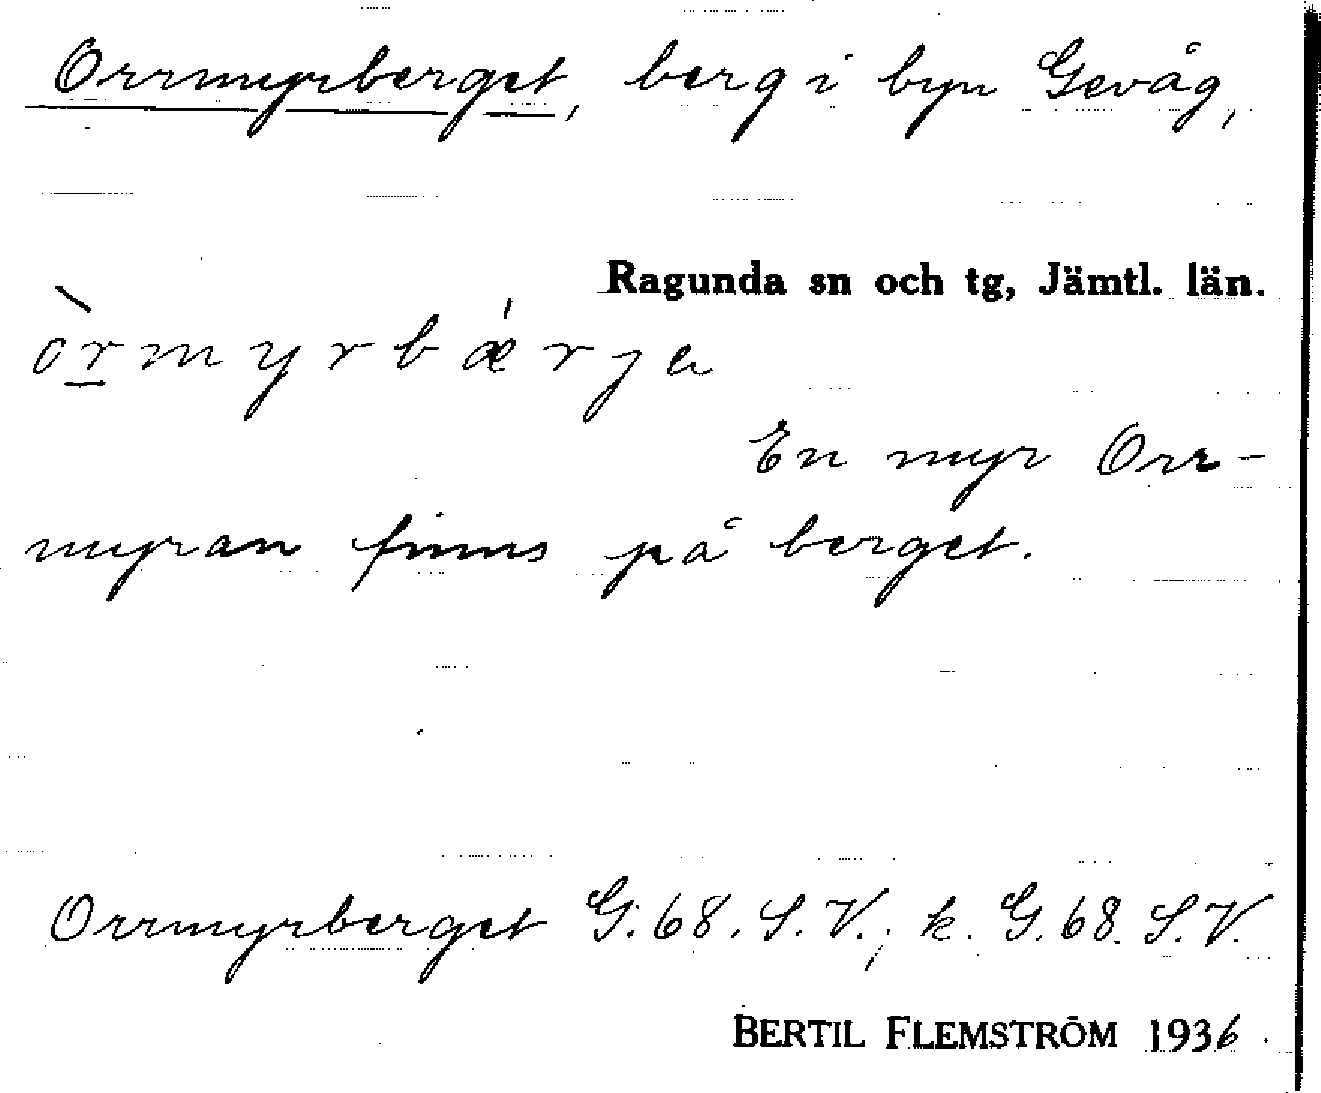 Orrmyrberget, berg i byn Gevåg,
Ragunda sn och tg, Jämtl. län.
òr̲myrbǽrjɐ
En myr Orr-
myran finns på berget.
Orrmyrberget G.68.S.V.; k. G.68.S.V.
BERTIL FLEMSTRÖM 1936.